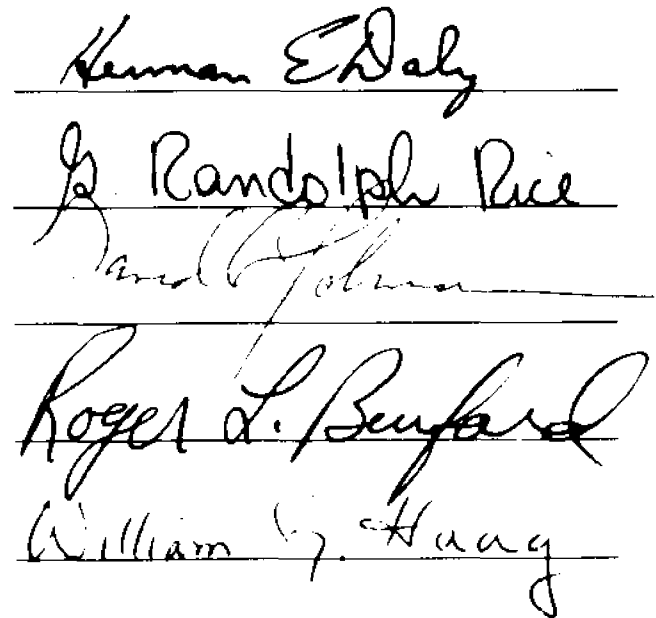 Herman E Daly
G Randolph Rice
David Johnson
Roger L. Burford
William G. Haag